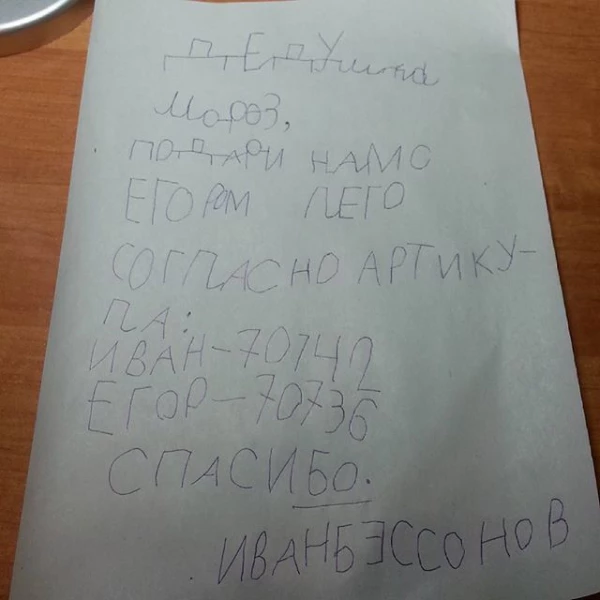 ДЕДУшка
Мороз,
ПОДАРИ НАМС
ЕГОРОМ ЛЕГО
СОГЛАСНО АРТИКУ-
ЛА:
ИВАН-70742
ЕГОР-70736
СПАСИБО.
ИВАНБЭССОНОВ